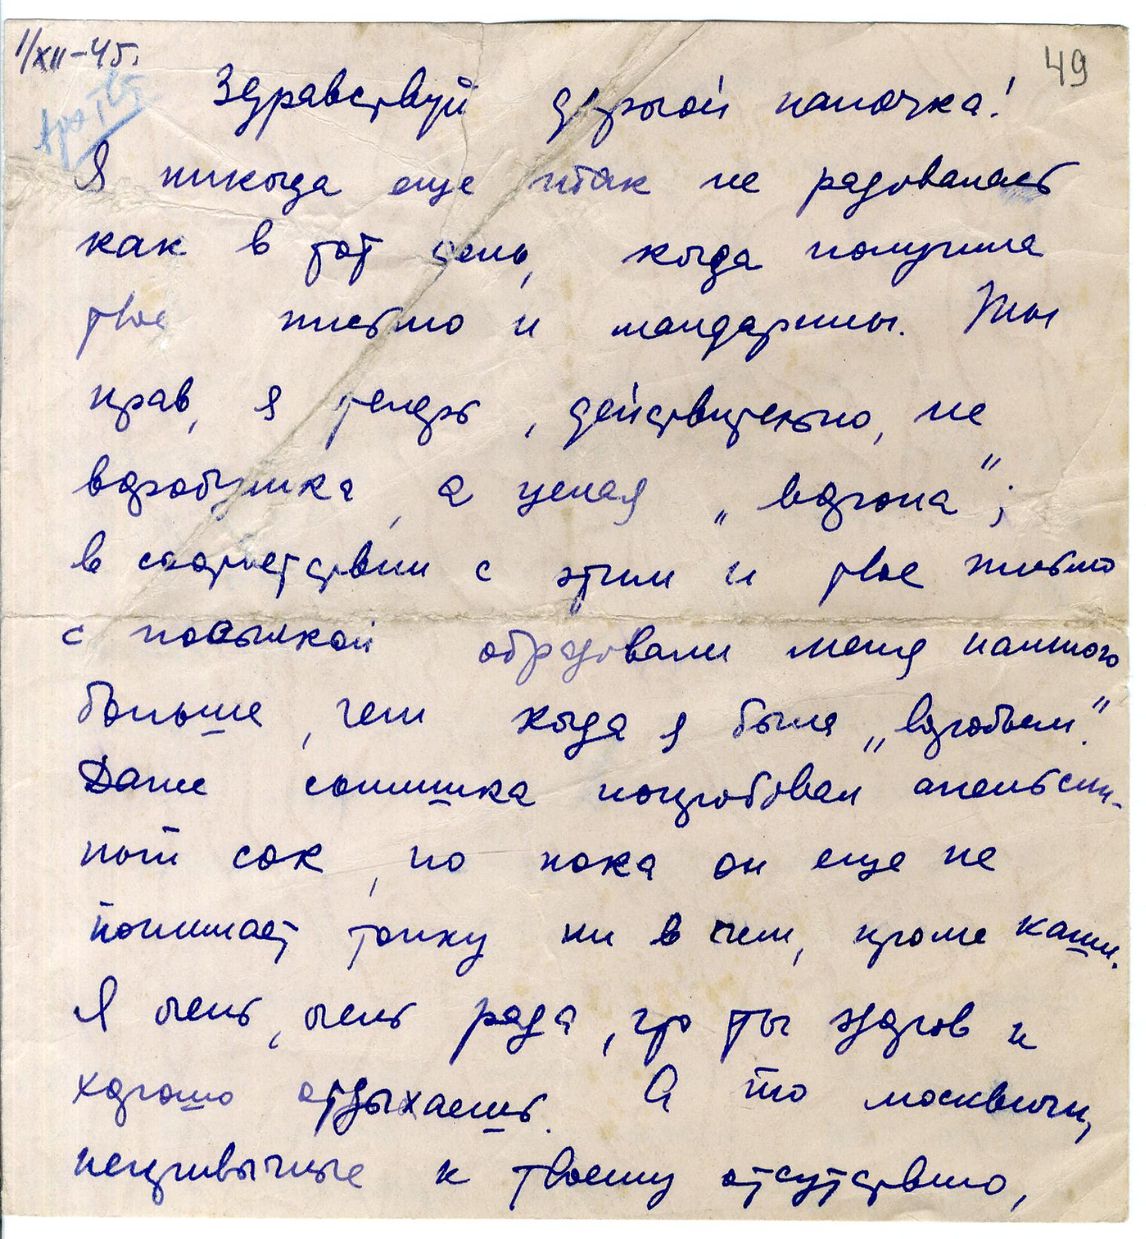 1/XII-45г.
49
Здравствуй дорогой папочка!
Я никогда еще не радовалась
как в тот день, когда получила
твое письмо и мандарины. Ты
прав, я теперь, действительно, не
воробушка, а целая „ворона“;
в соответствии с этим и твое письмо
с посылкой обрадовали меня намного
больше, чем когда я была „воробьем“.
Даже сынишка попробовал апельсин-
ный сок, но пока он еще не
понимает толку ни в чем, кроме каши.
Я очень, очень рада, что ты здоров и
хорошо отдыхаешь. А то москвичи,
непривычные к твоему отсутствию,